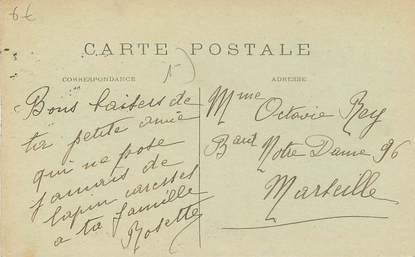 6 €
CARTE POSTALE
CORRESPONDANCE
ADRESSE
Bons baisers de
ta petite amie
qui ne pose
jamais de
lapin caresses
a ta famille
Rosette
Mme Octavie Rey
Bard Notre Dame 96
Marseille